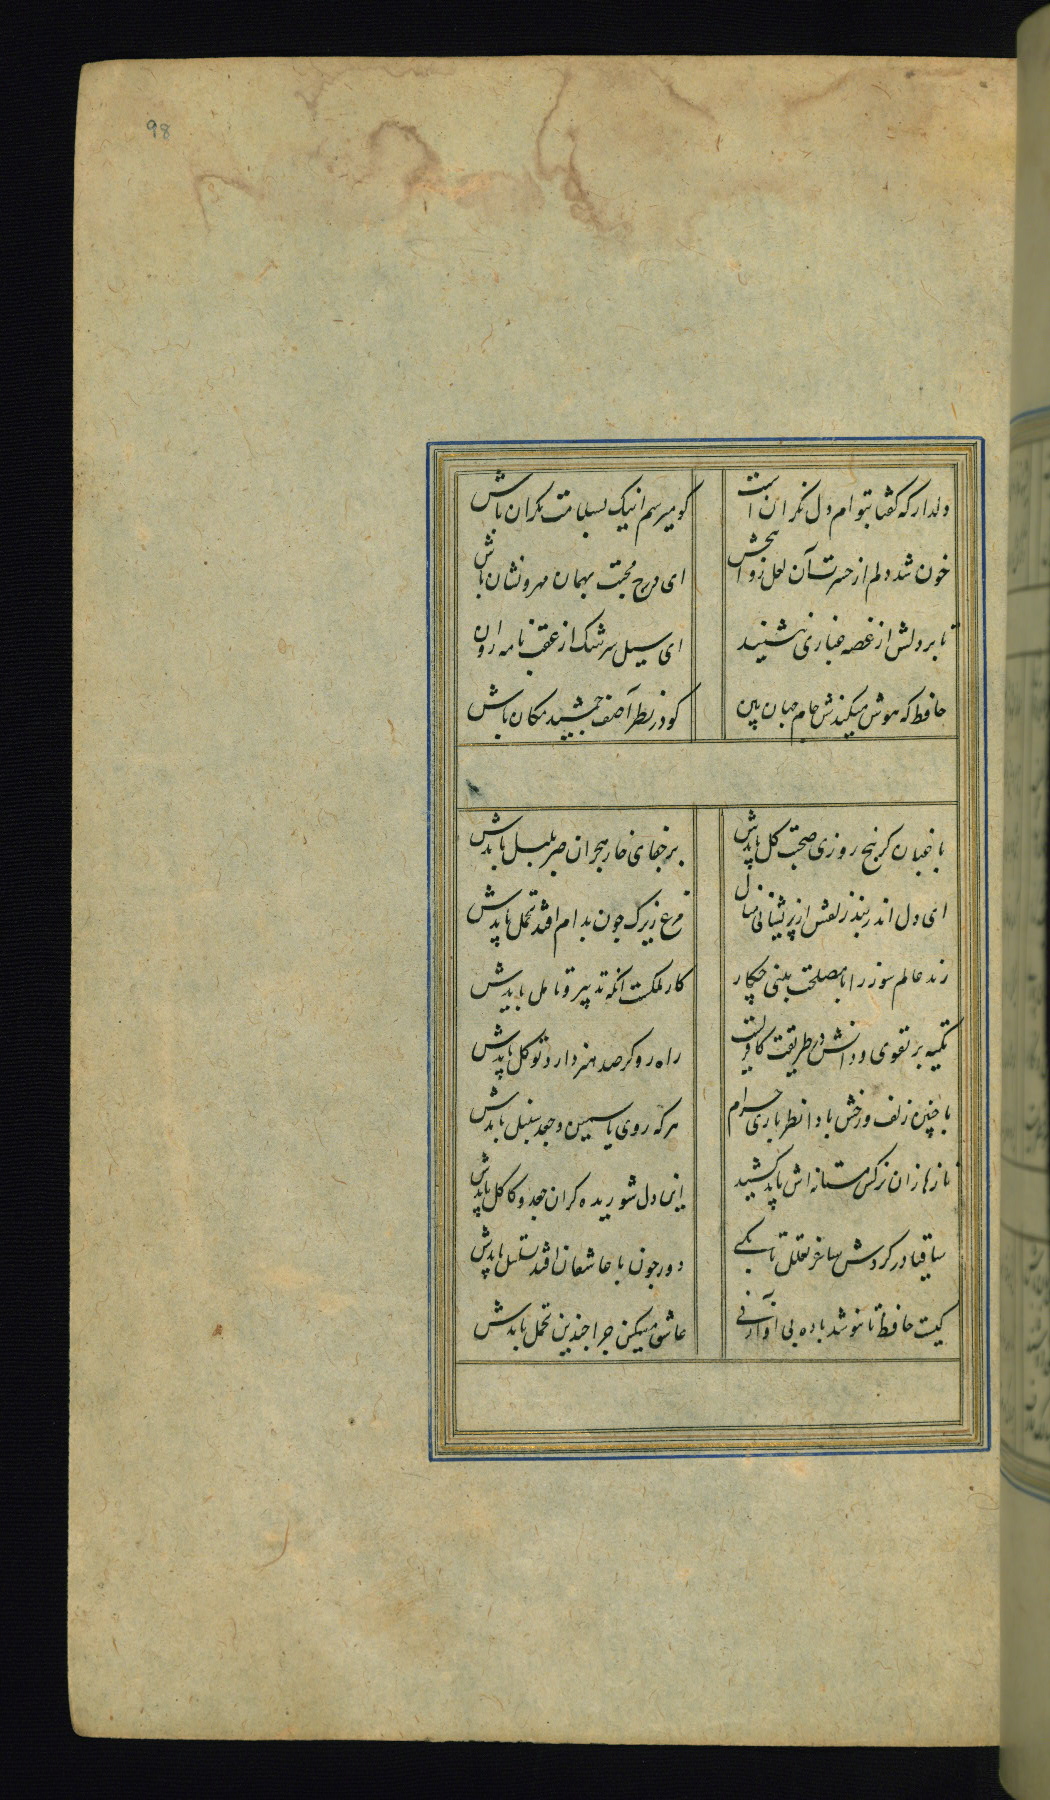 98
دلدار که گفتا بتوام دل نگرانست
گو میرسم اینک بسلامت نگران باش
خون شد دلم از حسرت آن لعل روانبخش
ای درج محبت بهمان مهر و نشان باش
تا بر دلش از غصه غباری ننشیند
ای سیل سرشک از عقب نامه روان
حافظ که هوس میکندش جام جهان بین
کو در نظر آصف جمشید مکان باش
باغبان گر پنج روزی صحبت گل بایدش
بر جفای خار هجران صبر بلبل بایدش
ای دل اندر بند زلفش از پریشانی منال
مرغ زیرک چون بدام افتد تحمل بایدش
رند عالم سوز را با مصلحت بینی چکار
کار ملکست آنکه تدبیر و تامل بایدش
تکیه بر تقوی و دانش در طریقت کافریست
راه رو گر صد هنر دارد توکل بایدش
با چنین زلف و رخش بادا نظر بازی حرام
هر که روی یاسمین و جعد سنبل بایدش
نازها زان نرگس مستانه اش باید کشید
این دل شوریده گر آن جعد و کاکل بایدش
ساقیا در گردش ساغر تعلل تا بکی
دور چون با عاشقان افتد تسلسل بایدش
کیست حافظ تا ننوشد باده بی آواز نی
عاشق مسکین چرا چندین تحمل بایدش